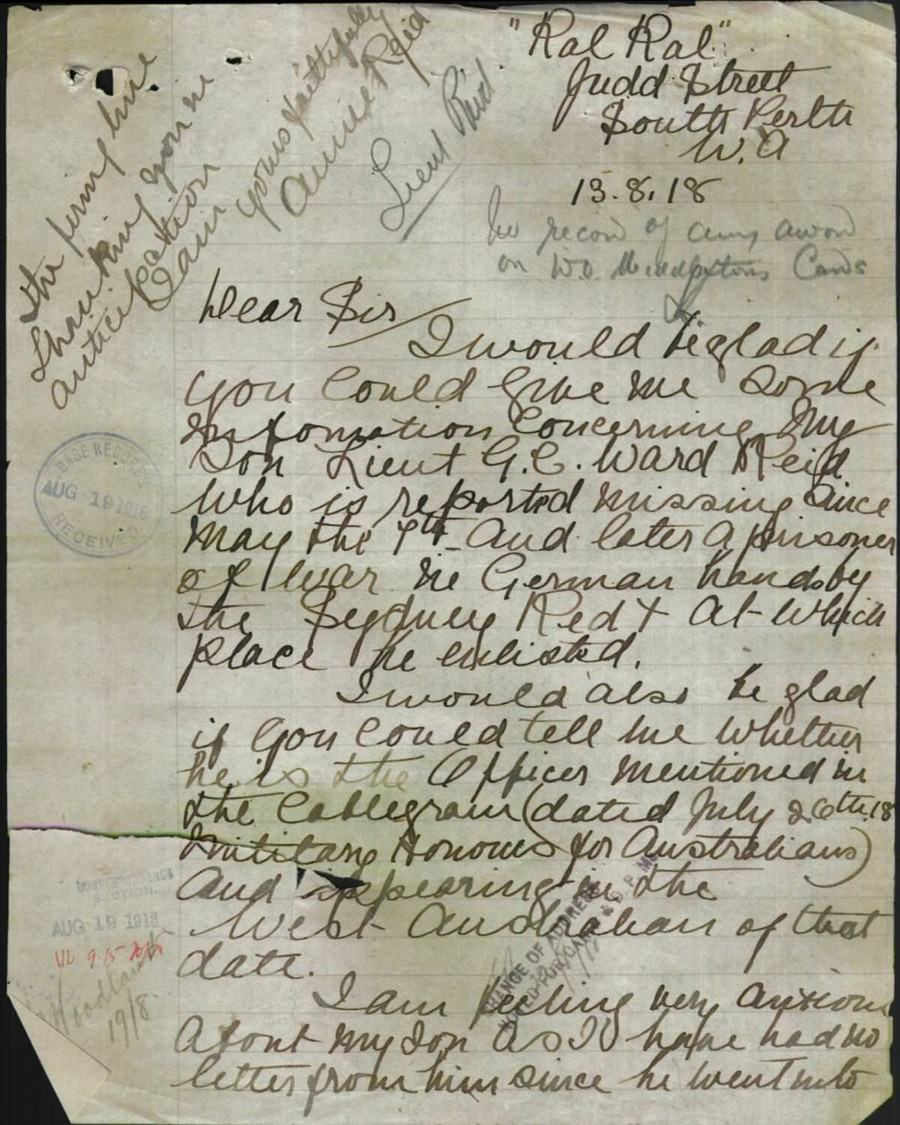 "Kal Kal"
Judd Street
South Perth
W.A
13.8.18
No record of any award
on W.O. Cards
Dear Sir
I would be glad if
you could give me some
Information Concerning My
Son Lieut G.C. Ward Reid
Who is reported missing Since
May the 7th And later a prisoner
of War in German hands by
the Sydney Red + At Which
place he enlisted.
I would also be glad
if you could tell me whether
he is the Officer mentioned in
the Cablegram (dated July 26th.18
Military Honours for Australians)
And appearing in the
West Australian of that
date.
I am feeling very anxious
About my Son As I have had no
letter from him since he went into
the firing line
Thanking you in
anticipation
I am
yours faithfully
Annie Reid
Lieut Reid
BASE RECORDS
AUG 19 1918
RECEIVED
CORRESPONDENCE
SECTION.
AUG 19 1918
Woodland
19/8
CHANGE OF ADDRESS